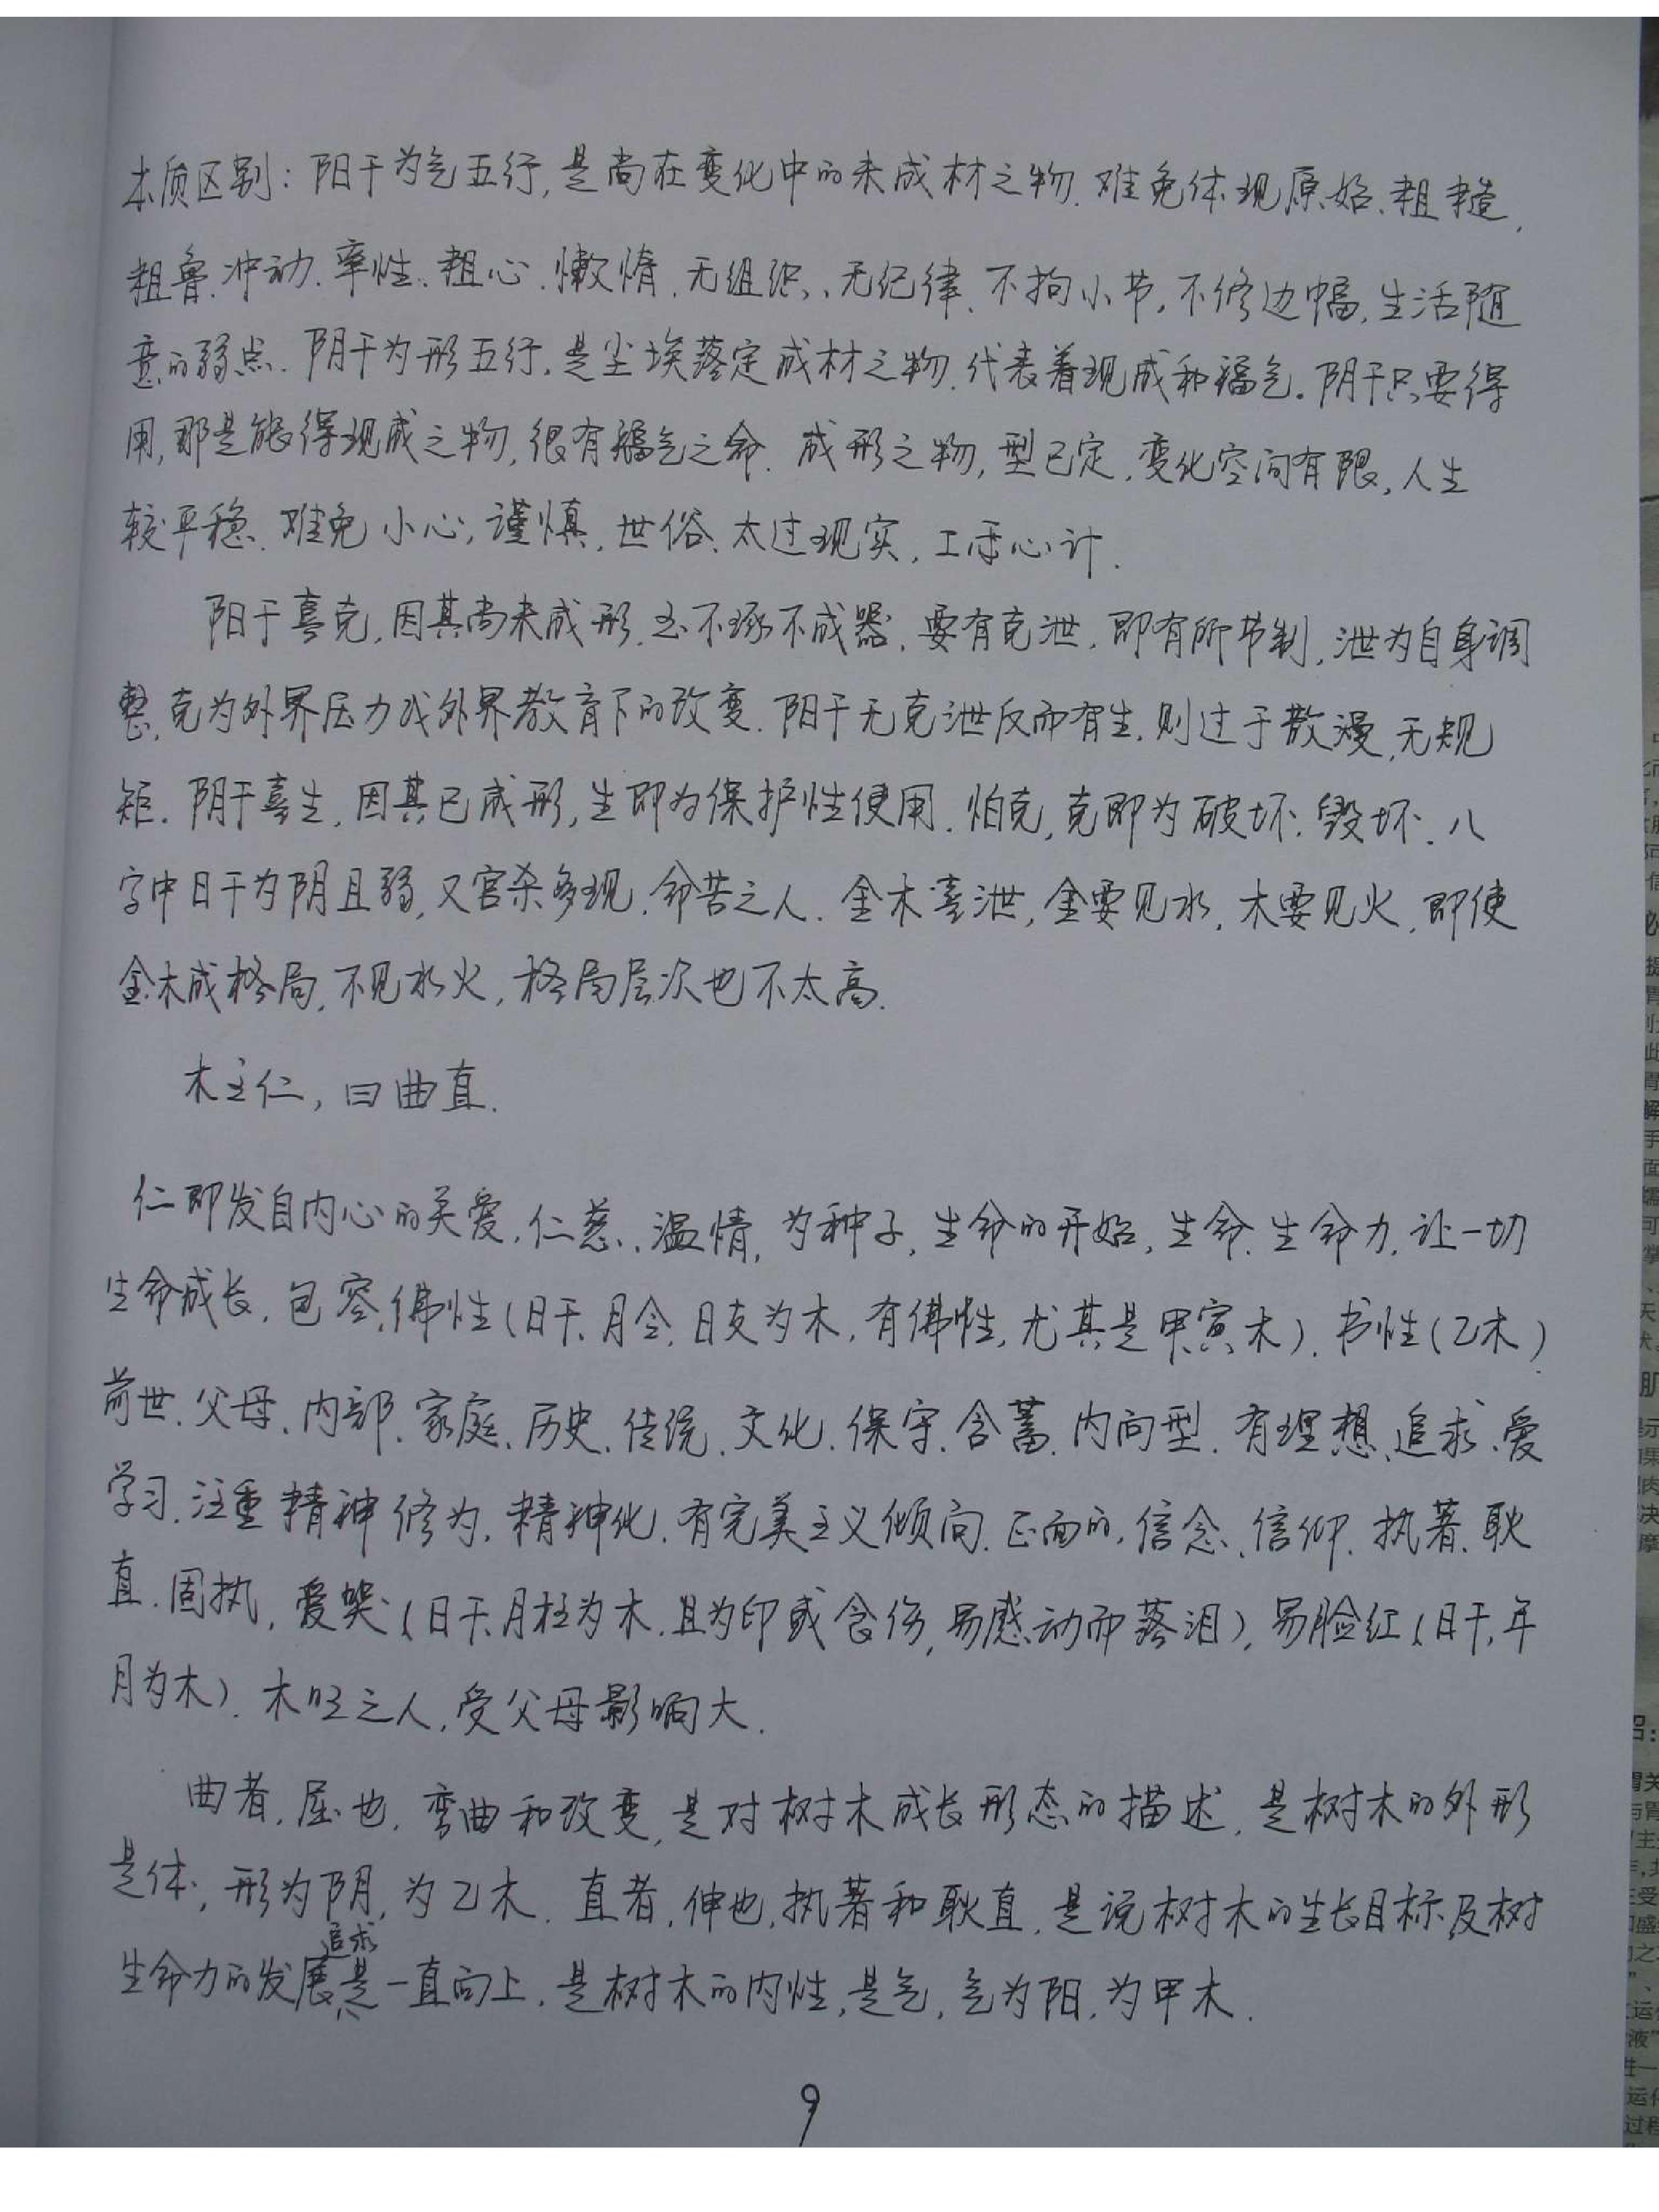 本质区别：阳干为气五行，是尚在变化中的未成材之物．难免体现原始、粗糙，
粗鲁．冲动．率性．粗心．懒惰．无组织、无纪律．不拘小节，不修边幅，生活随
意的弱点．阴干为形五行，是尘埃落定成材之物．代表着现成和福气．阴干只要得
用，那是能得现成之物，很有福气之命．成形之物，型已定，变化空间有限，人生
较平稳．难免小心，谨慎，世俗、太过现实，工于心计．
阳干喜克，因其尚未成形，玉不琢不成器，要有克泄，即有所节制，泄为自身调
整，克为外界压力或外界教育下的改变．阳干无克泄反而有生，则过于散漫，无规
矩．阴干喜生，因其已成形，生即为保护性使用．怕克，克即为破坏．毁坏．八
字中日干为阴且弱，又官杀多现．命苦之人．金木喜泄，金要见水，木要见火，即使
金木成格局，不见水火，格局层次也不太高．
木主仁，曰曲直．
仁即发自内心的关爱，仁慈、温情，为种子，生命的开始，生命．生命力．让一切
生命成长，包容，佛性(日干、月令，日支为木，有佛性，尤其是甲寅木)．书性(乙木)
前世．父母、内部．家庭、历史．传统．文化．保守．含蓄．内向型．有理想、追求．爱
学习．注重精神修为，精神化．有完美主义倾向．正面的，信念、信仰．执著．耿
直．固执，爱哭(日干、月柱为木．且为印或食伤，易感动而落泪)，易脸红(日干，年
月为木)．木旺之人，受父母影响大．
曲者，屈也，弯曲和改变，是对树木成长形态的描述，是树木的外形
是体，形为阴，为乙木．直者，伸也，执著和耿直，是说树木的生长目标及树
追求
生命力的发展是一直向上，是树木的内性，是气，气为阳，为甲木．
9